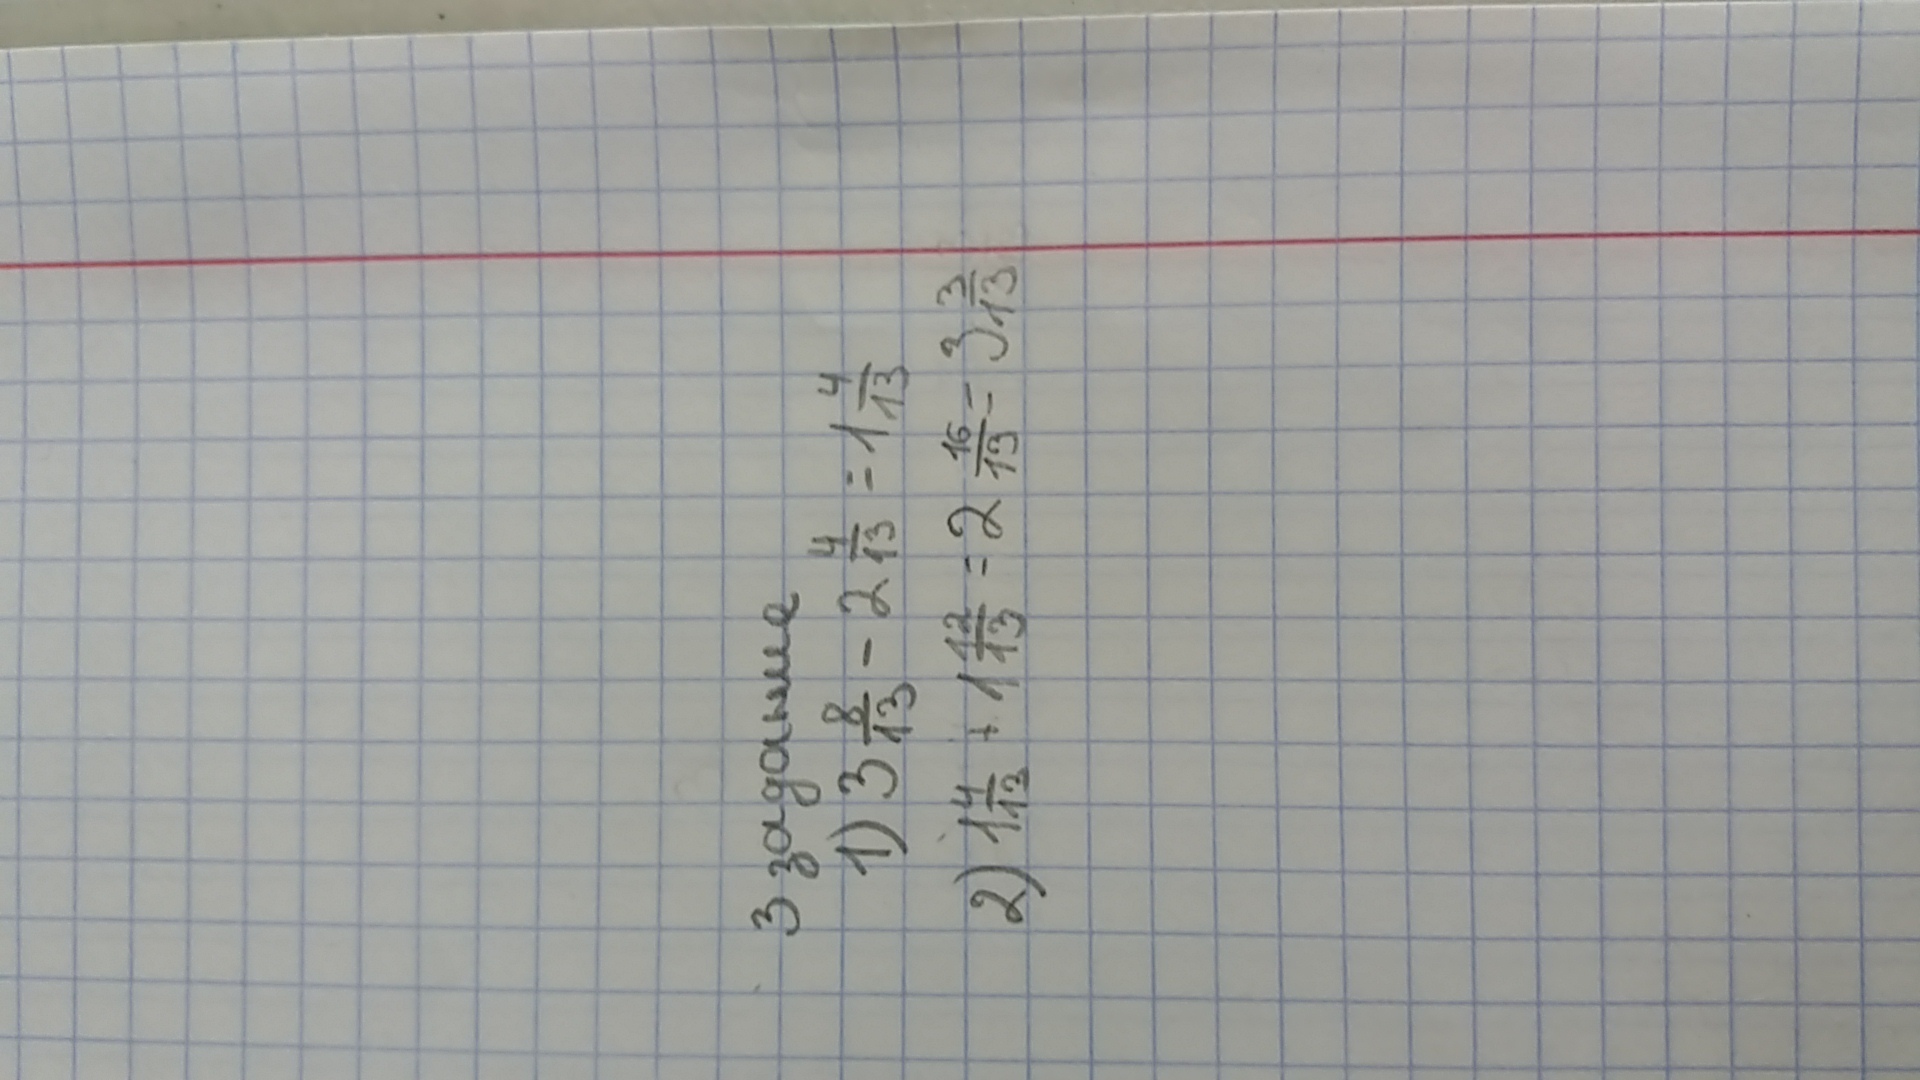 3 задание
1) 3 8/13 - 2 4/13 = 1 4/13
2) 1 4/13 + 1 12/13 = 2 16/13 = 3 3/13